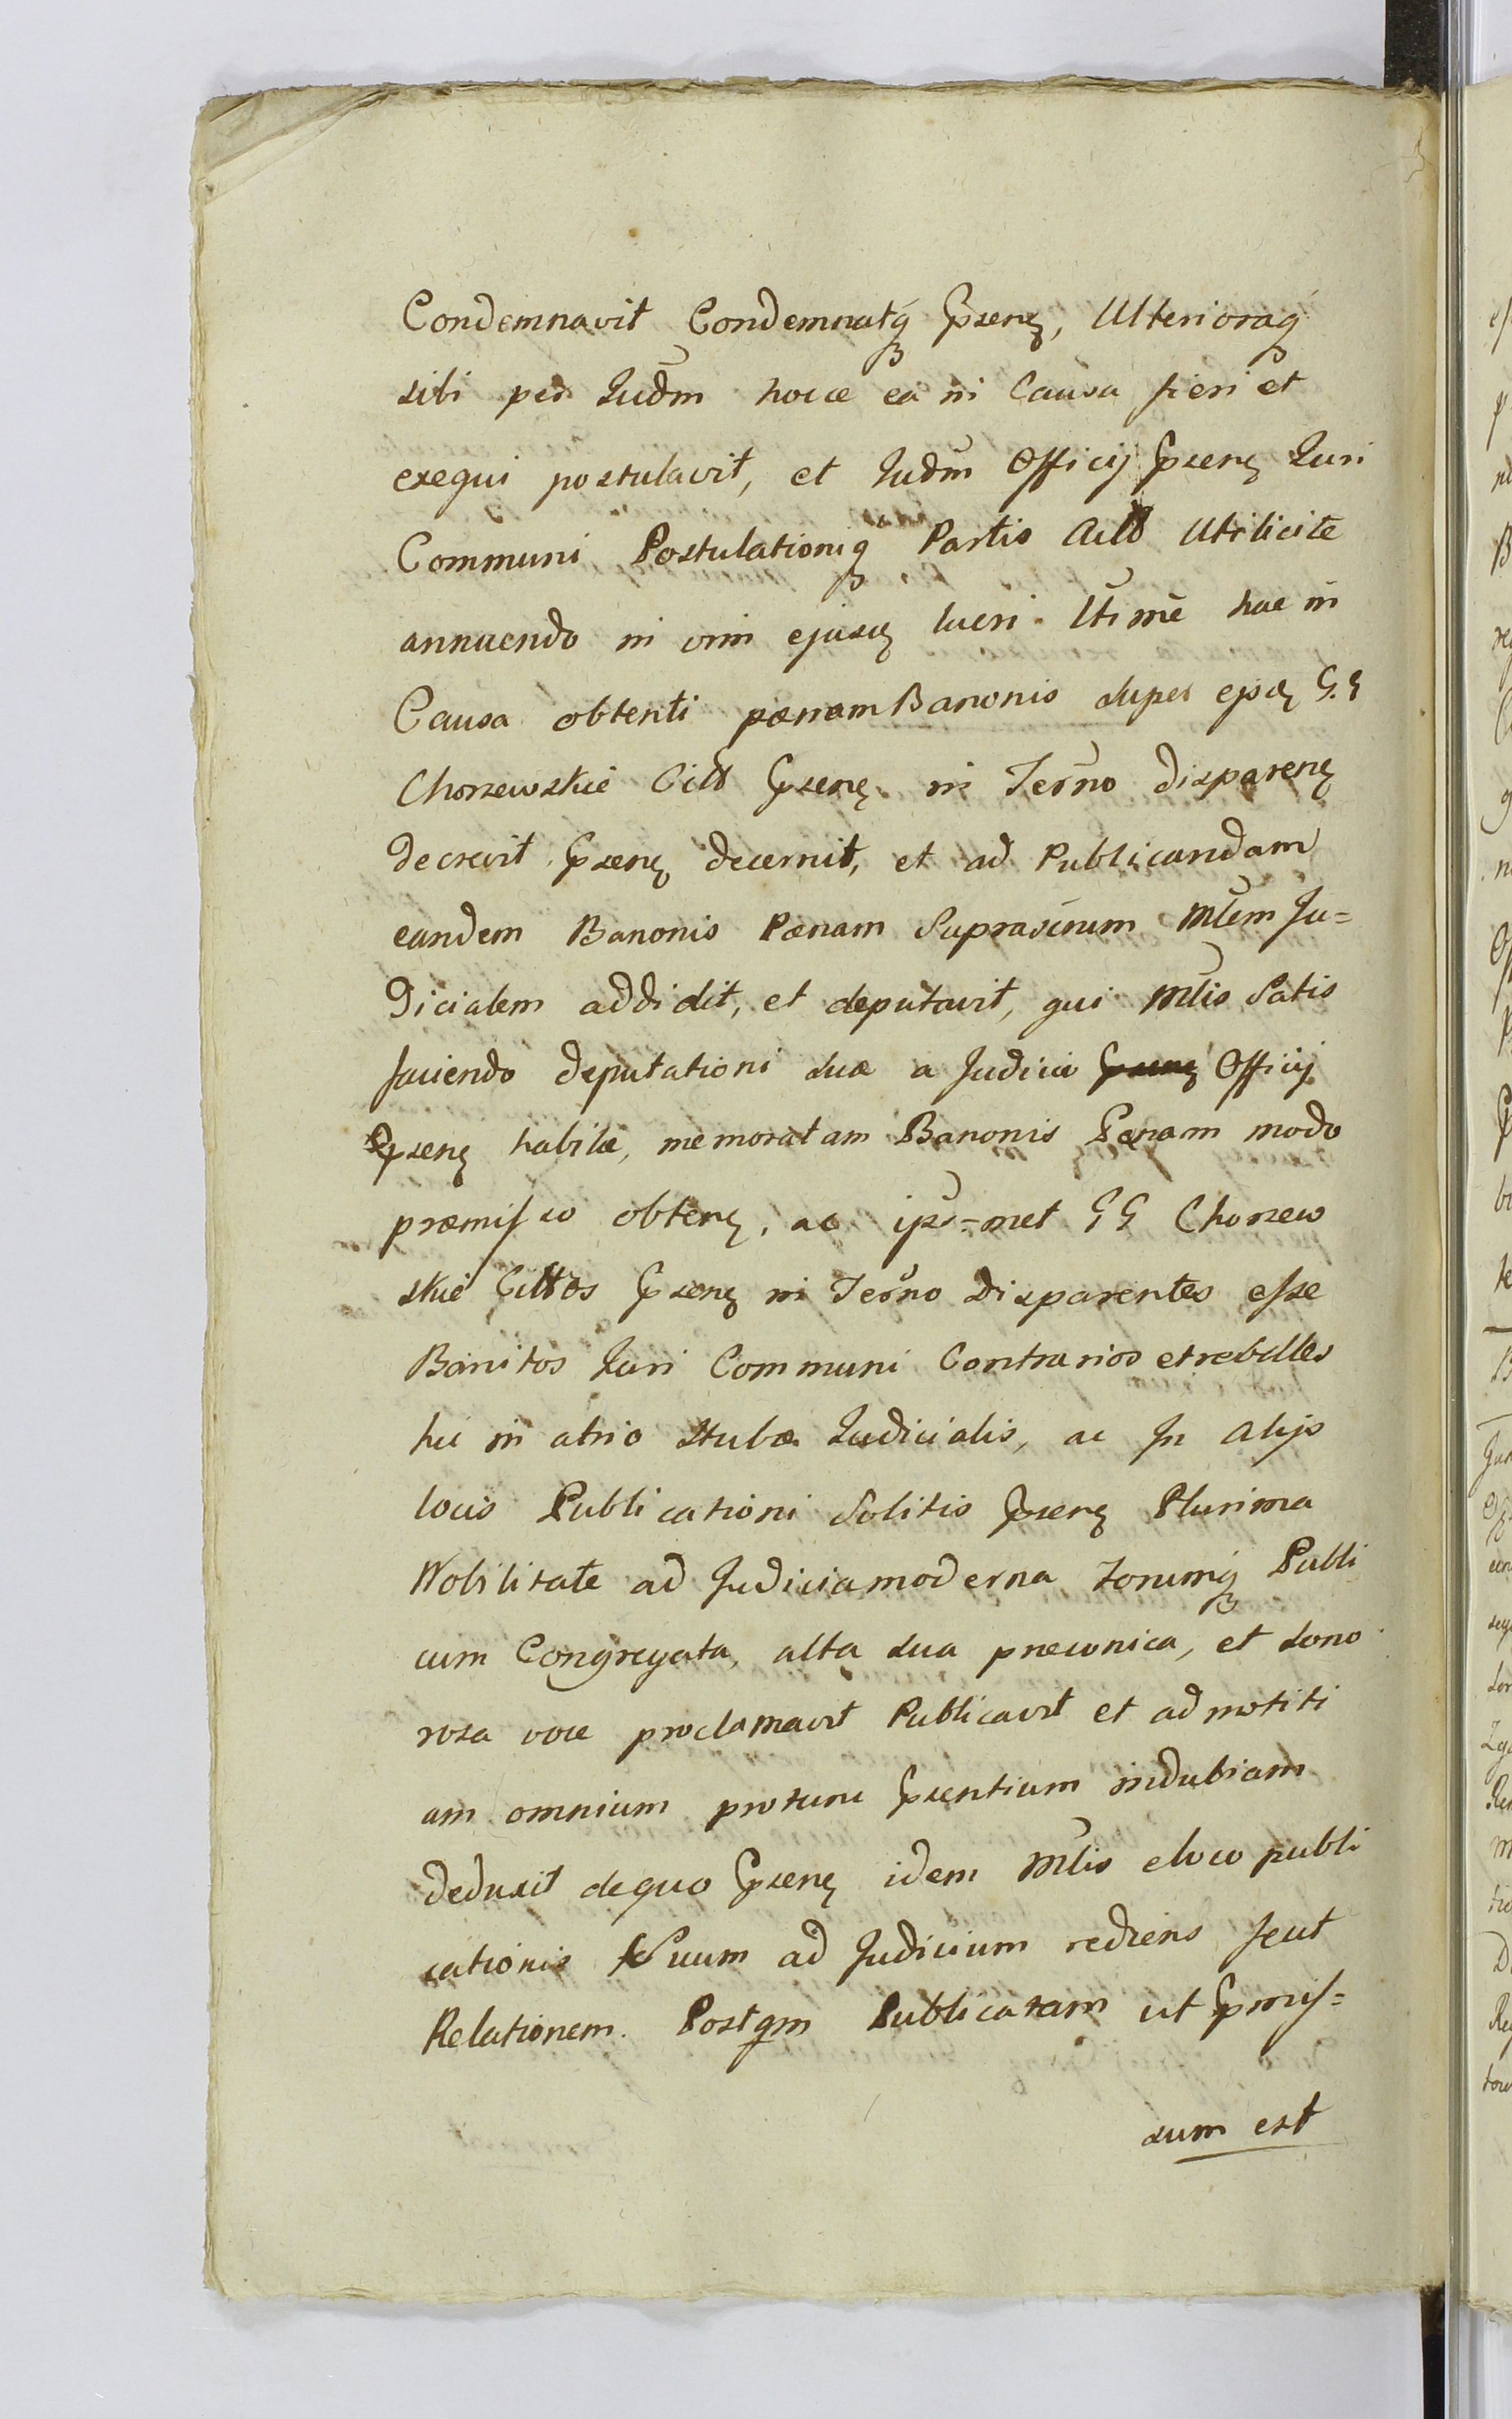 Condemnavit Condemnatq; Ppsenɋ, Ulterioraq;
sibi per Judm hocce ea in Causa fieri et
exequi postulavit, et Judm Officij Ppsenɋ Juri
Communi Postulationiq; Partis Actt Utrilicite
annuendo in vim ejusɋ lucri Utime hac in
Causa obtenti pænam Banonis super epdɋ G.G
Chorzewskie Citt Ppsenɋ in Termno disparenɋ
decrevit Ppsenɋ decernit, et ad Publicandam
eandem Banonis Pænam Suprascrium Mtem Ju=
dicialem addidit, et deputavit, qui Mtlis Satis
faciendo deputationi suæ a Judicii Officij
Ppsenɋ habitæ, memoratam Banonis Pænam modo
præmisso obtenɋ, ac ips=met GG Chorzew
skie Cittos Ppsenɋ in Termno disparentes esse
Banitos Juri Communi Contrarios et rebelles
hic in atrio Stubæ Judicialis, ac In alijs
locis Publicationi Solitis Ppsenɋ Plurima
Nobilitate ad Judicia moderna Forumq; Publi
cum Congregata, alta sua præconica, et sono
rosa voce proclamavit Publicavit et ad notiti
am omnium protunc Ppsentium indubiam
deduxit de quo Ppsenɋ idem Mtlis e loco publi
cationis Suum ad Judicium rediens fecit
Relationem. Postqm Publicatam ut Ppmis=
sum est